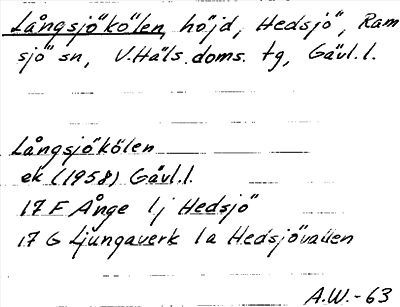 Långsjökölen, höjd, Hedsjö, Ram
sjö sn, V. Häls. doms. tg, Gävl. l.
Långsjökölen
ek (1958) Gävl. l.
17 F Ånge 1j Hedsjö
17 G Ljungaverk 1a Hedsjövallen
A.W.-63